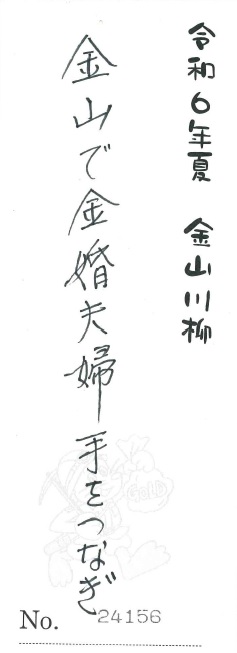 令和6年夏　金山川柳
金山で金婚夫婦手をつなぎ
GOLD
No. 24156